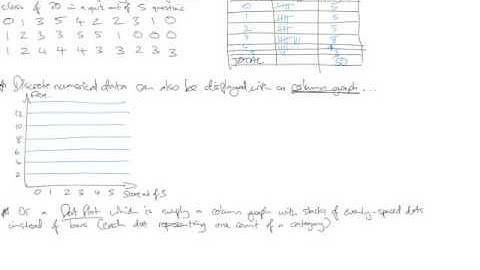 class of 30 in a quiz out of 5 questions
0 1 3 5 4 2 2 3 1 0
1 2 3 3 5 5 1 0 0 0
1 2 4 4 4 3 3 2 3 3
0 5
1 5
2 5
3 8
TOTAL 30
Discrete numerical data can also be displayed with a column graph...
Freq.
12
10
8
6
4
2
0 1 2 3 4 5 Score out of 5
Or a Dot Plot which is simply a column graph with stacks of evenly-spaced dots
instead of bars (each dot representing one count of a category).